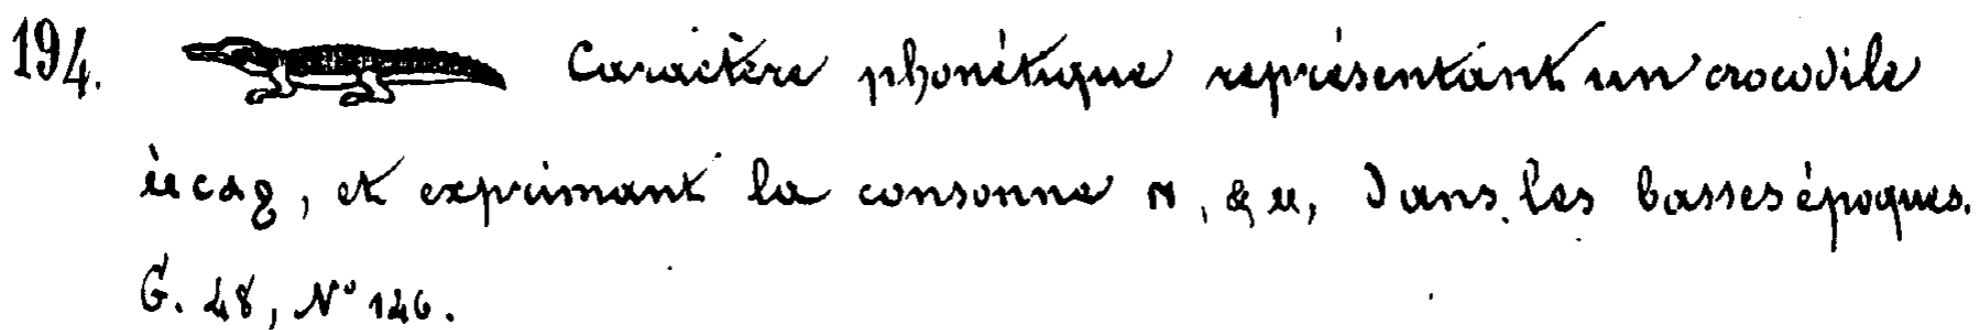 194. Caractère phonétique représentant un crocodile
ⲙ̀ⲥⲁϩ, et exprimant la consonne ⲛ, & ⲙ, dans les basses époques.
G. 48, N° 126.